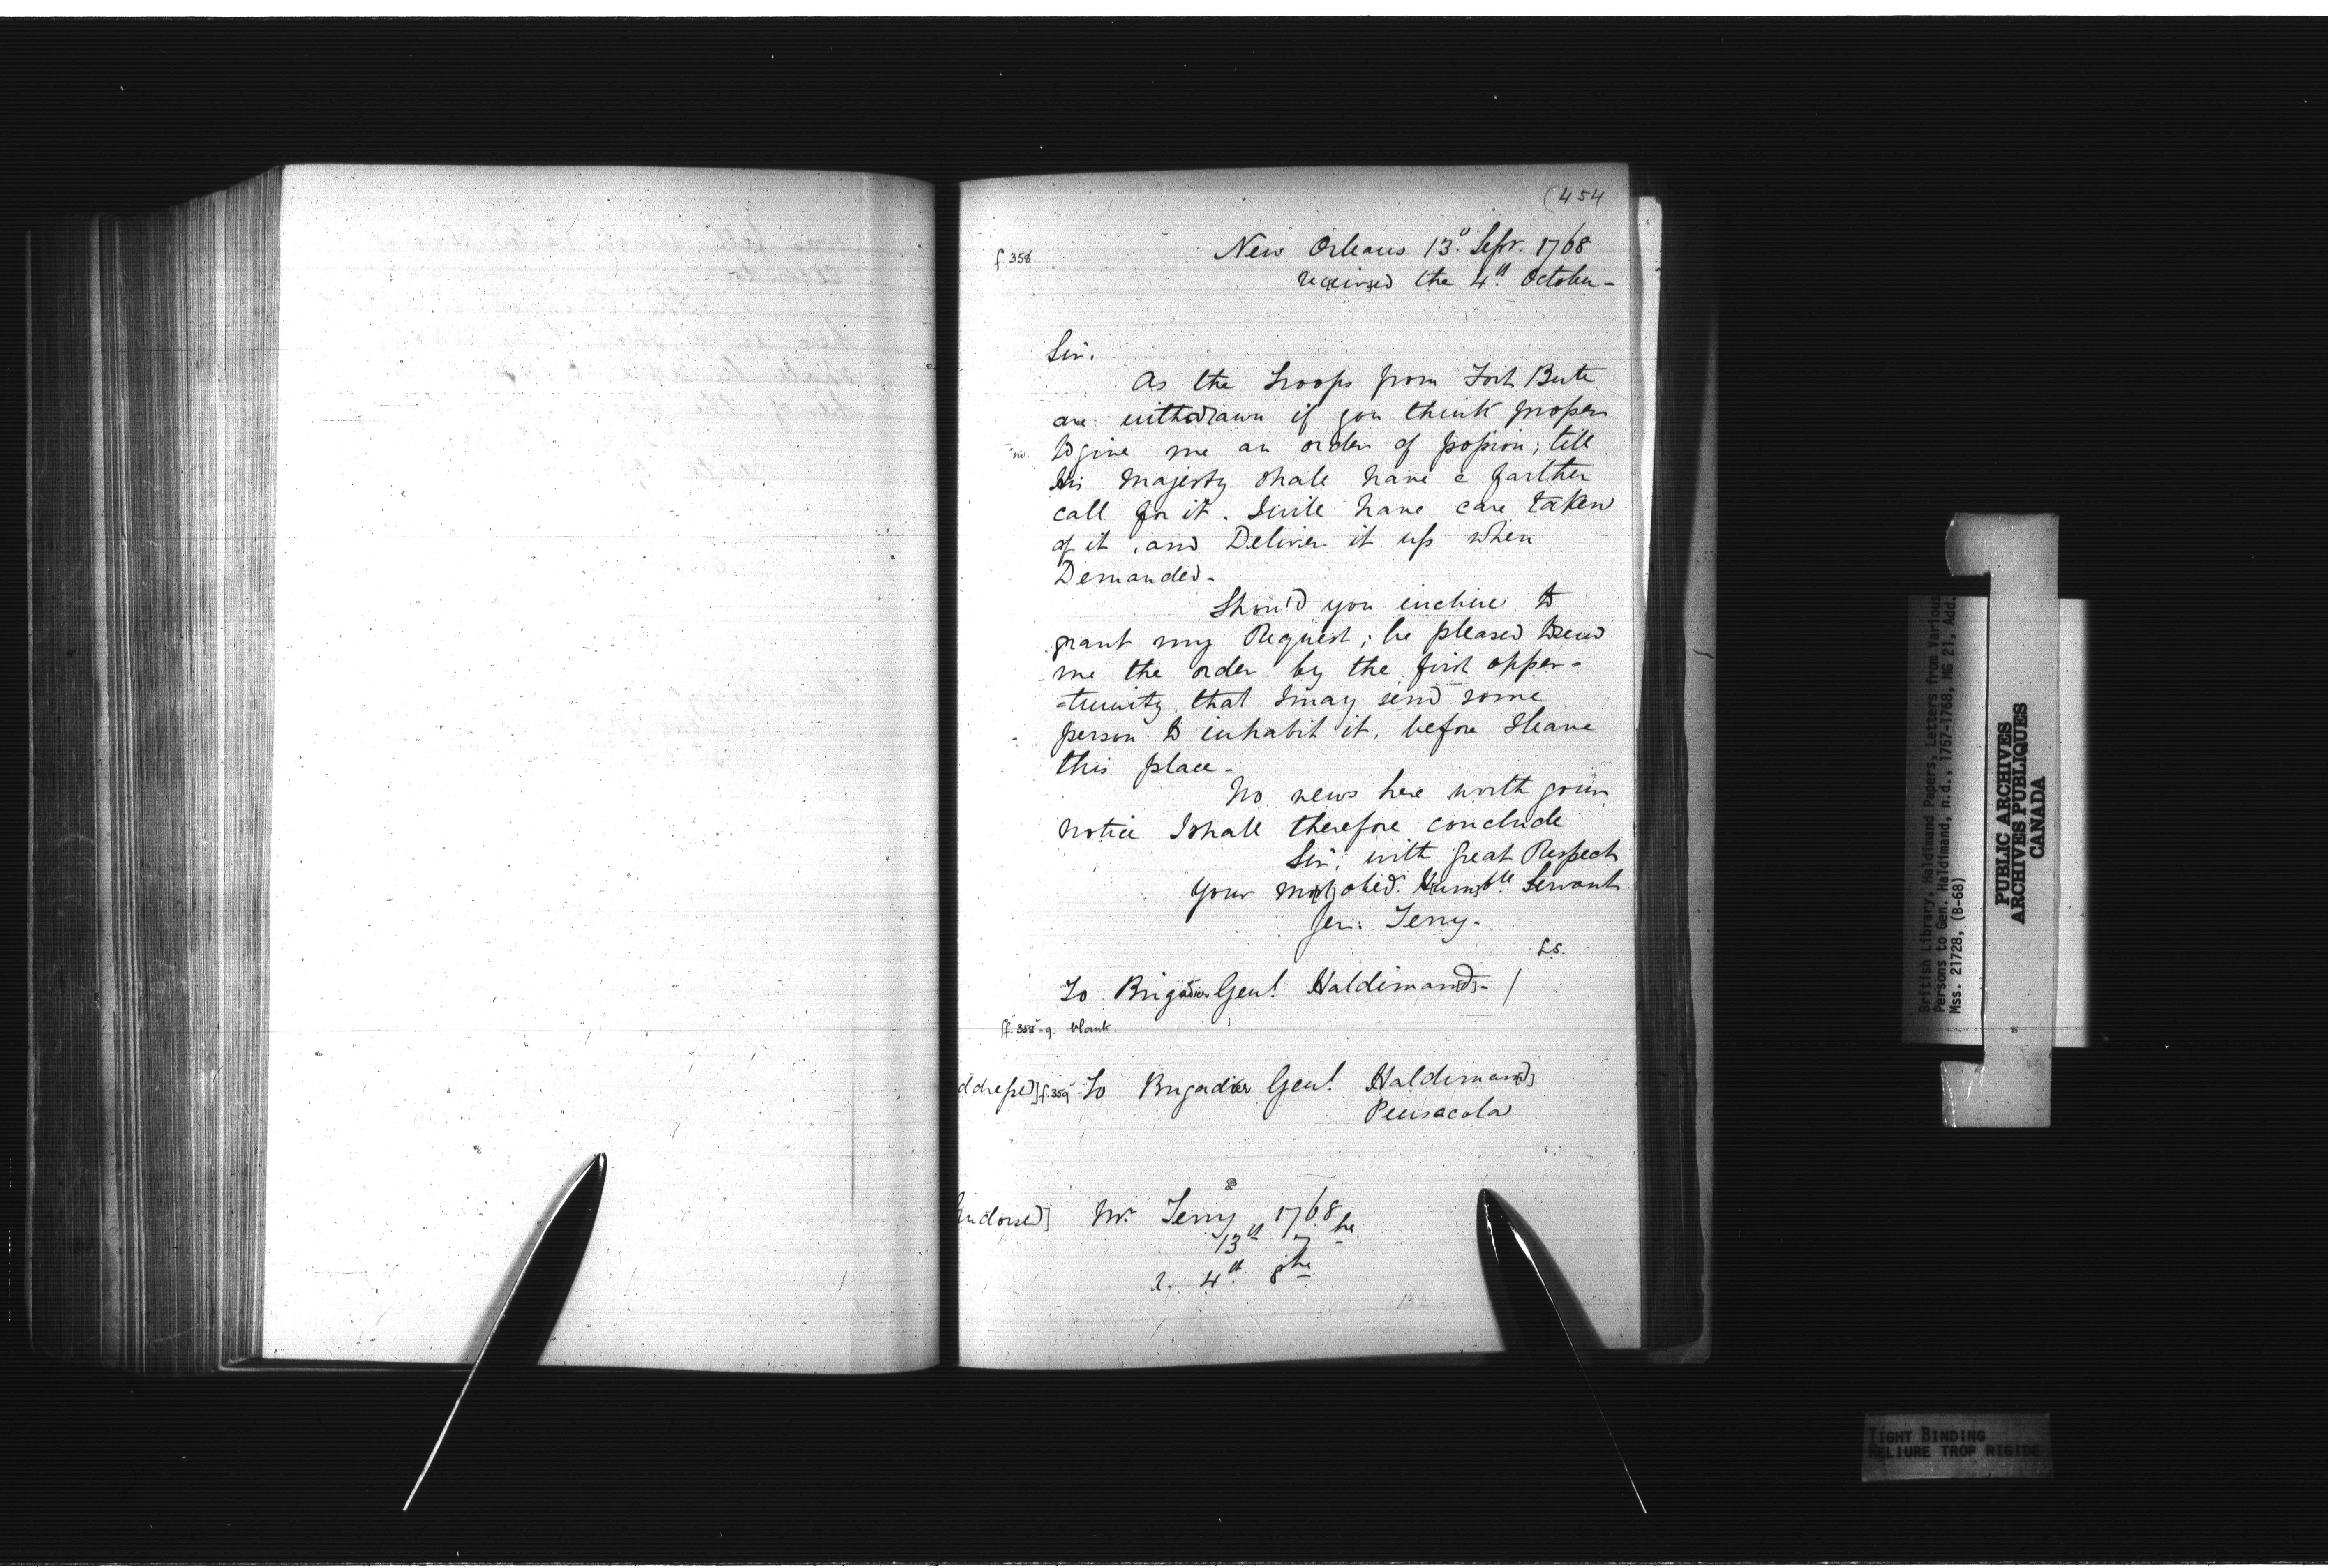 (454
f 358.
New Orleans 13th Sepr. 1768
received the 4th October -
Sir.
As the Troops from Fort Bute
are withdrawn if you think proper
to give me an order of possion; till
his Majesty shall have a farther
call for it. I will have care taken
of it, and Deliver it up when
Demanded -
Shou'd you incline to
grant my Request; be pleased to send
me the order by the first oppor-
-tunity, that I may send some
person to inhabit it, before I leave
this place -
No news here worth your
notice I shall therefore conclude
Sir, with great Respect
Your mo[st] obed. Humble Servant
Jer: Terry -
LS.
To Brigadier Genl. Haldiman[d] - /
[f. 358v-9. blank.
ddressed] f. 359v To Brigadier Genl. Haldiman[d]
Pensacola
ndorsed] Mr. Terry 1768
13th 7bre
r. 4th 8bre
British Library, Haldimand Papers, Letters from Various
Persons to Gen. Haldimand, n.d., 1757-1768, MG 21, Add.
Mss. 21728, (B-68)
PUBLIC ARCHIVES
ARCHIVES PUBLIQUES
CANADA
TIGHT BINDING
RELIURE TROP RIGIDE